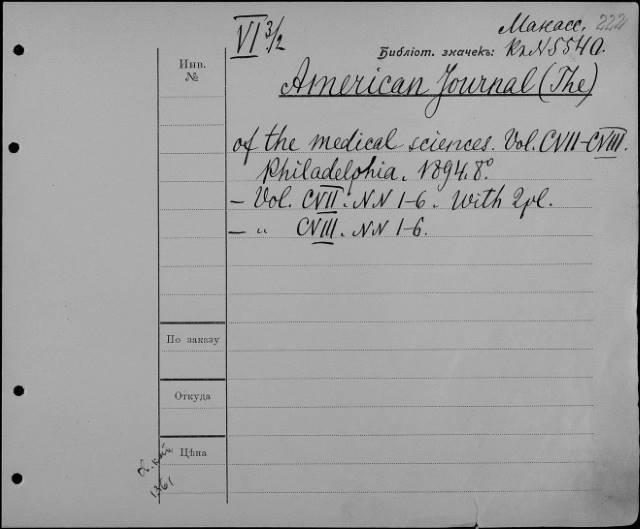 VI 3/2
Манасс. 222
Библіот. значекъ: Кх N 5540.
Инв.
№
American Journal (The)
of the medical sciences. Vol. CVII-CVIII.
Philadelphia. 1894. 8°
— Vol. CVII. NN 1-6. With 2pl.
— „ CVIII. NN 1-6.
По заказу
Откуда
Цѣна
1361